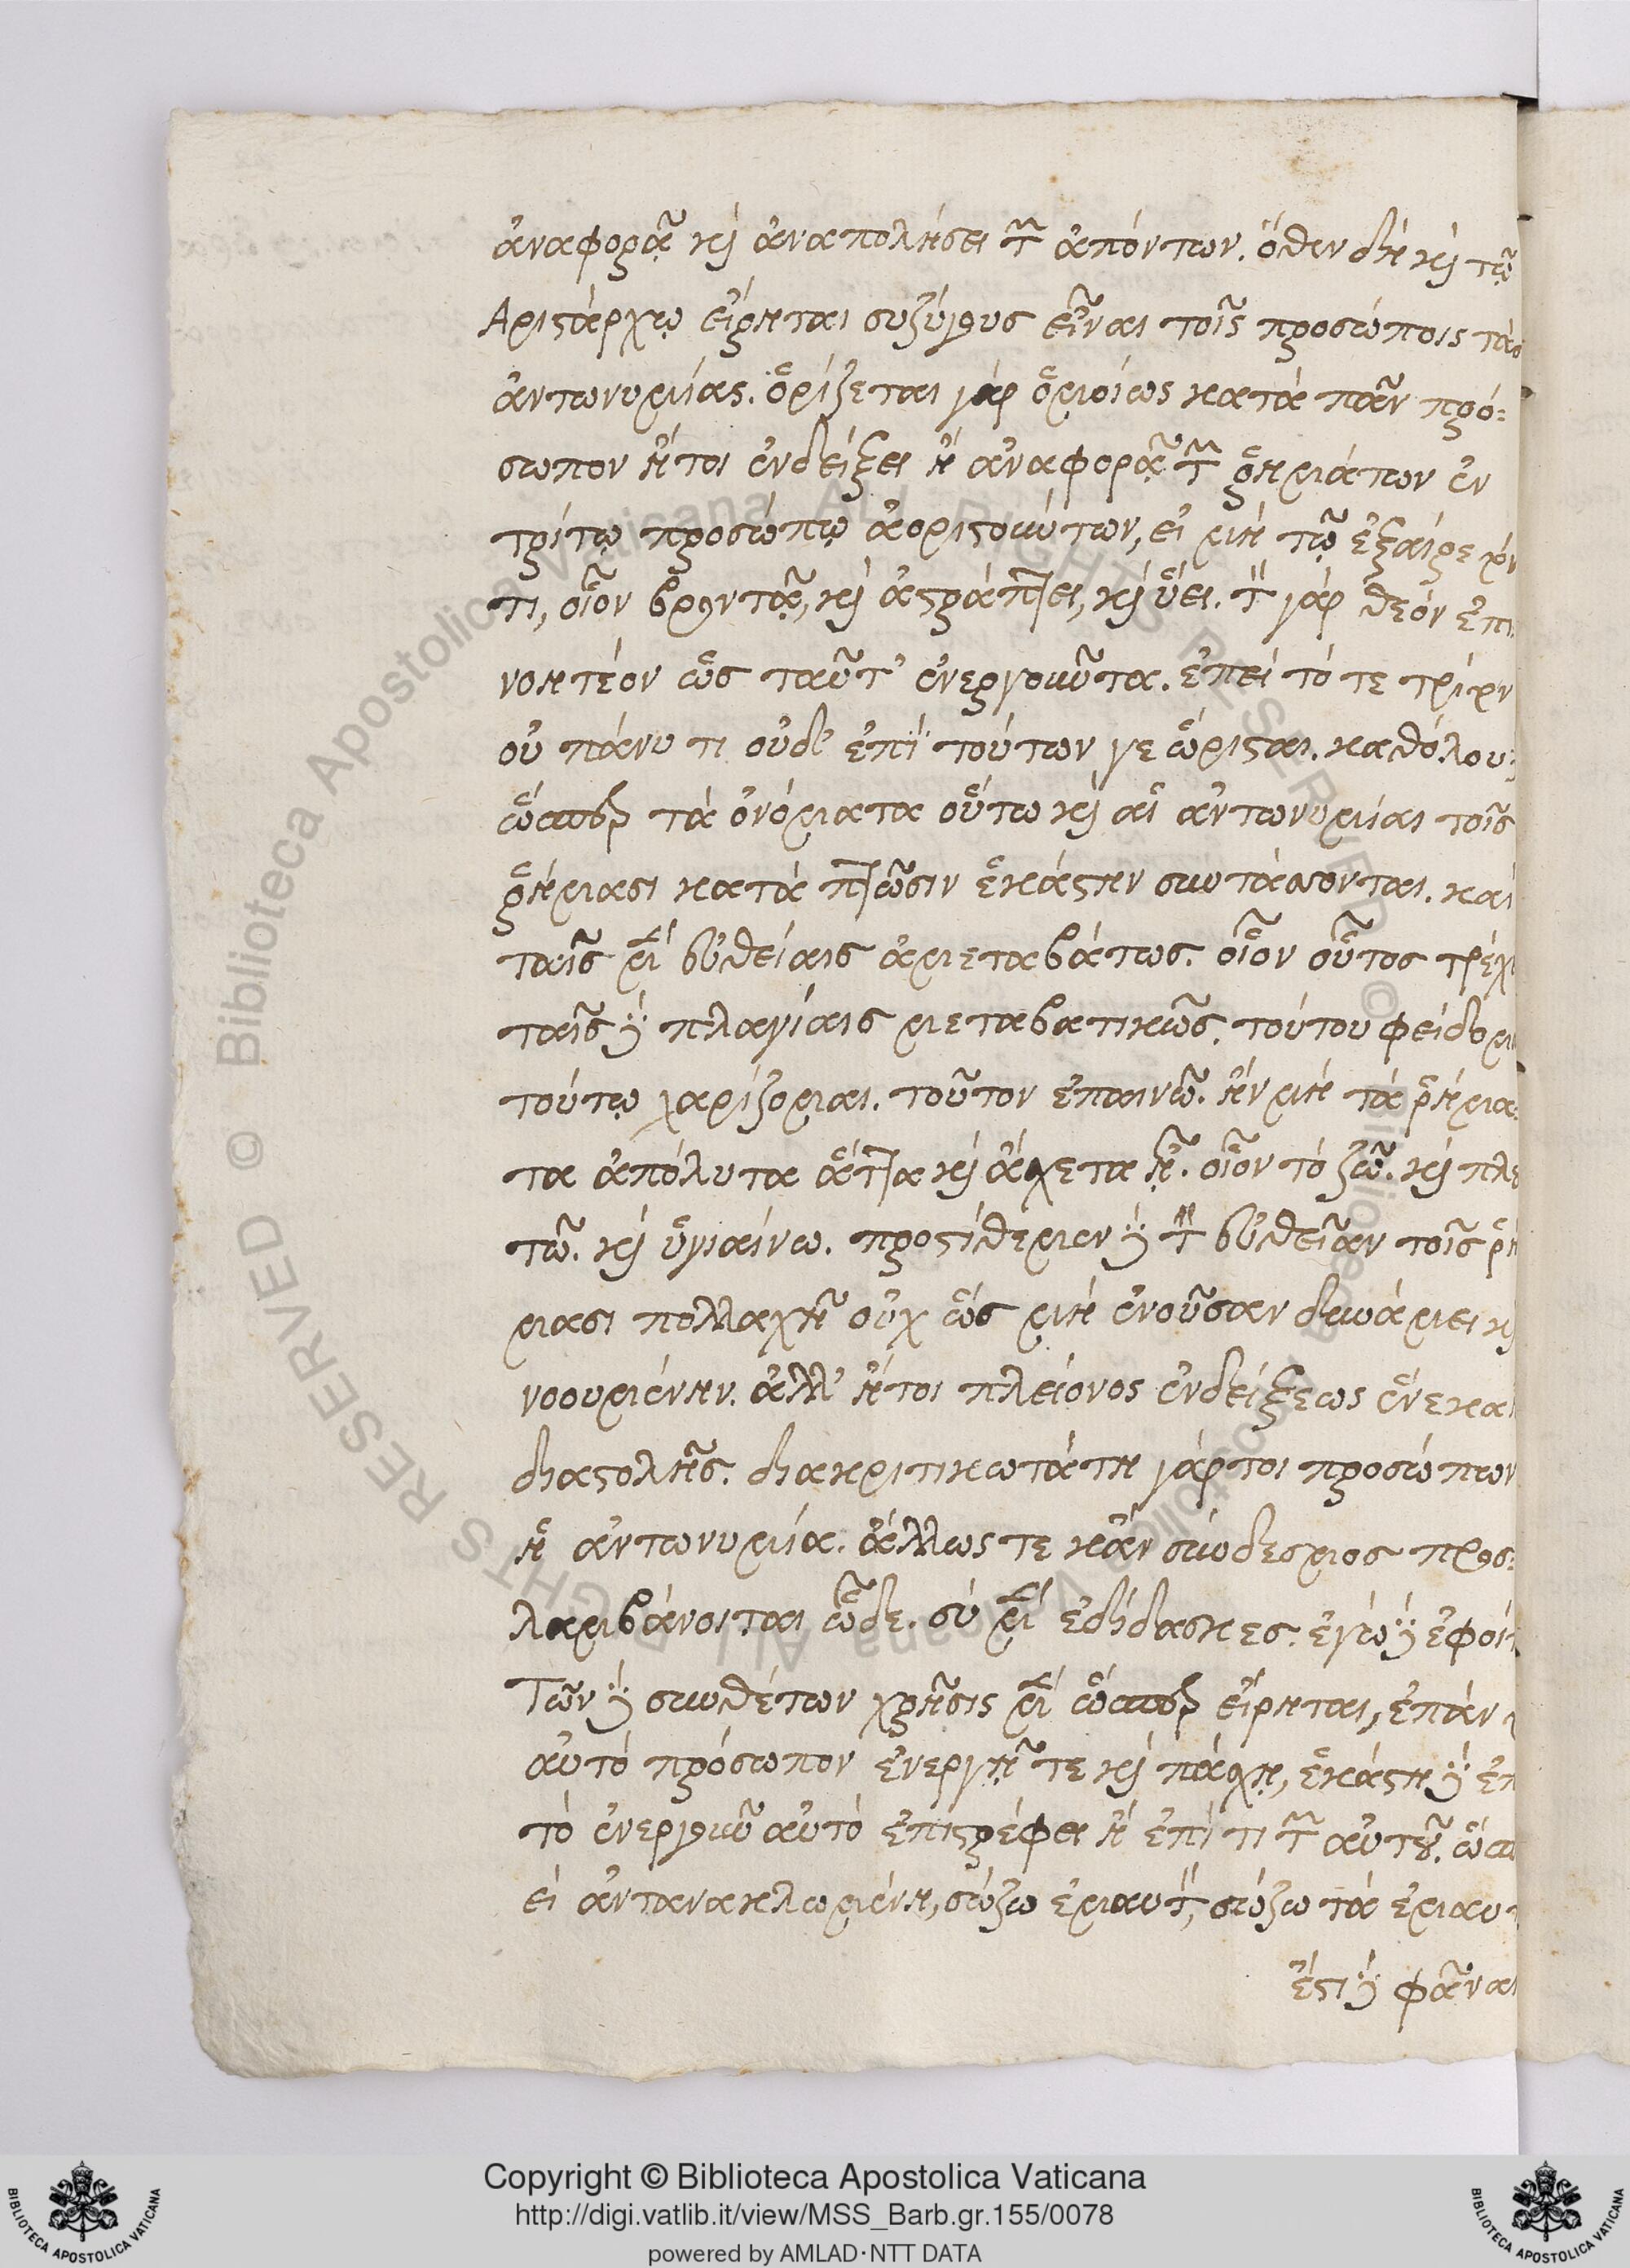 ἀναφορᾷ καὶ ἀναπολήσει τῶν ἀπόντων. ὅθεν δὴ καὶ τῷ
Αριστάρχῳ εἴρηται συζύγους εἶναι τοῖς προσώποις τὰς
ἀντωνυμίας. ὁρίζεται γὰρ ὁμοίως κατὰ πᾶν πρό-
σωπον ἤτοι ἐνδείξει ἢ ἀναφορᾷ τῶν ῥημάτων ἐν
τρίτῳ προσώπῳ ἀοριστούντων, εἰ μὴ τῷ ἐξαίρε
τι, οἷον βροντᾷ, καὶ ἀστράπτει, καὶ ὕει. τὸν γὰρ θεὸν ἐπι
νοητέον ὡς ταῦτ' ἐνεργοῦντα. ἐπεὶ τό τε τρίτον
οὐ πάνυ τι οὐδ' ἐπὶ τούτων γε ὥρισται. καθόλου
ὥσπερ τὰ ὀνόματα οὕτω καὶ αἱ ἀντωνυμίαι τοῖς
ῥήμασι κατὰ πτῶσιν ἑκάστην συντάσσονται. καὶ
ταῖς μὲν εὐθείαις ἀμεταβάτως. οἷον οὗτος τρέχει
ταῖς δὲ πλαγίαις μεταβατικῶς. τούτου φείδομαι
τούτῳ χαρίζομαι. τοῦτον ἐπαινῶ. ἢν μὴ τὰ ῥήμα-
τα ἀπόλυτα ἅττα καὶ ἄσχετα ᾖ. οἷον τὸ ζῶ. καὶ πλου
τῶ. καὶ ὑγιαίνω. προστίθεμεν δὲ τὴν εὐθεῖαν τοῖς ῥή
μασι πολλαχῆ οὐχ ὡς μὴ ἐνοῦσαν δυνάμει καὶ
νοουμένην. ἀλλ' ἤτοι πλείονος ἐνδείξεως ἕνεκα
διαστολῆς. διακριτικωτάτη γάρ τοι προσώπων
ἡ ἀντωνυμία. ἄλλως τε κἂν σύνδεσμος προς-
λαμβάνοιται ὧδε. σὺ μὲν ἐδίδασκες. ἐγὼ δὲ ἐφοίτ
Τῶν δὲ συνθέτων χρῆσις μὲν ὥσπερ εἴρηται, ἐπὰν
αὐτὸ πρόσωπον ἐνεργῇ τε καὶ πάσχῃ, ἑκάστη δὲ ἐπ
τὸ ἐνεργοῦν αὐτὸ ἐπιστρέφει ἢ ἐπί τι τῶν αὐτοῦ. ὡσπ
εὶ ἀντανακλωμένη, σώζω ἐμαυτὸν, σώζω τὰ ἐμαυτ
ἔστι δὲ φάναι